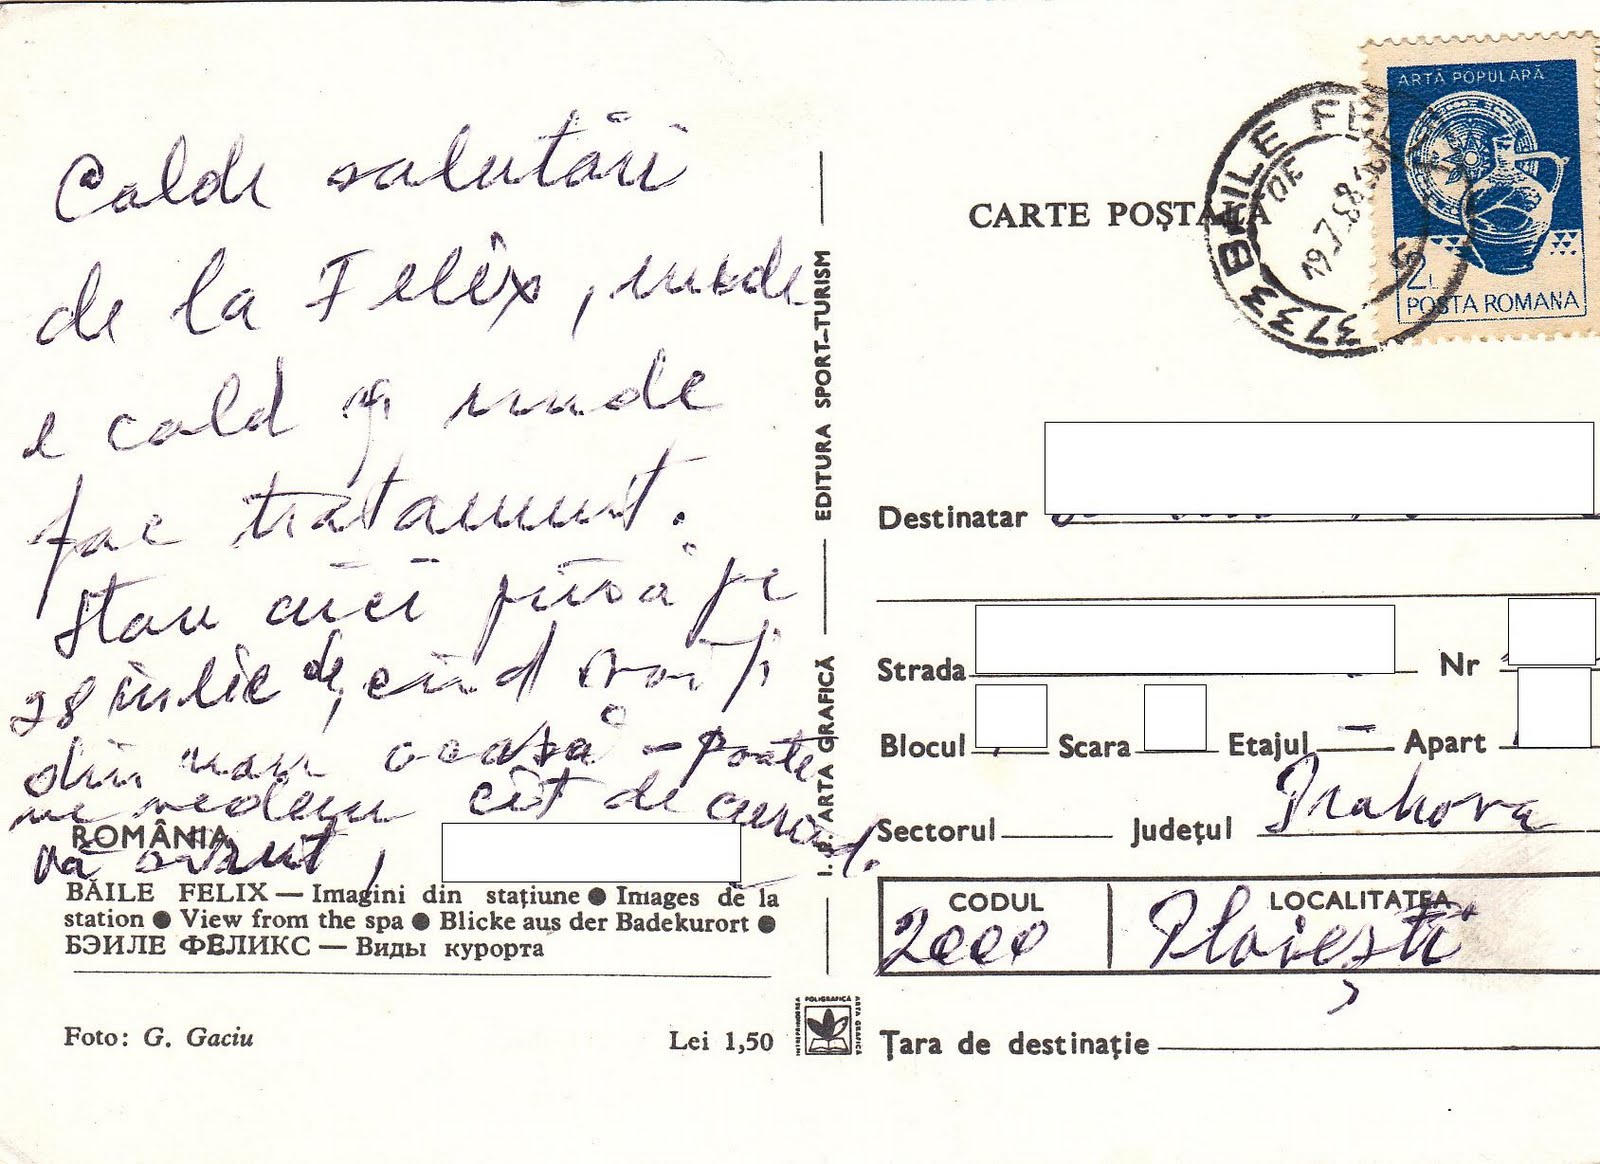 Calde salutări
de la Felix, unde
e cald și unde
fac tratament.
Stau aici până pe
28 iulie, cînd voi fi
din nou acasă – poate
ne vedem cît de curînd.
Vă sărut,
ROMÂNIA
BĂILE FELIX — Imagini din stațiune ● Images de la
station ● View from the spa ● Blicke aus der Badekurort ●
БЭИЛЕ ФЕЛИКС — Виды курорта
Foto: G. Gaciu
Lei 1,50
I. P. ARTA GRAFICĂ — EDITURA SPORT–TURISM
INTREPRINDEREA POLIGRAFICĂ ARTA GRAFICĂ
CARTE POȘTALĂ
3733 BAILE FELIX
19.7.88
ARTĂ POPULARĂ
2L
POSTA ROMANA
Destinatar
Strada Nr
Blocul Scara Etajul – Apart
Sectorul Județul Prahova
CODUL LOCALITATEA
2000 Ploiești
Țara de destinație